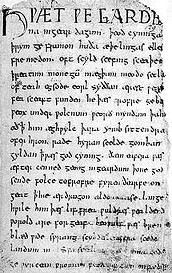 HǷÆT ǷE GARDE
na ingear dagum. þeod cyninga
þrym ge frunon huða æþelingas elle
fremedon. oft scyld scefing sceaþe
þreatum monegū mægþum meodo setla
of teah egsode eorl syððan ærest ƿear
fea sceaft funden he þæs frofre geba
ƿeox under ƿolcnum ƿeorð myndum þah
oð þæt him æghƿylc þara ymb sittendra
ofer hron rade hyran scolde gomban
gyldan þæt ƿæs god cyning. ðæm eafera ƿæs
æfter cenned geong ingeardum þone god
sende folce tofrofre fyren ðearfe on
geat þ hie ær drugon aldor ase. lange
hƿile him þæs lif frea ƿuldres ƿealdend
ƿorold are for geaf. beoƿulf ƿæs breme
blæd ƿide sprang scyldes eafera scede
landum in.